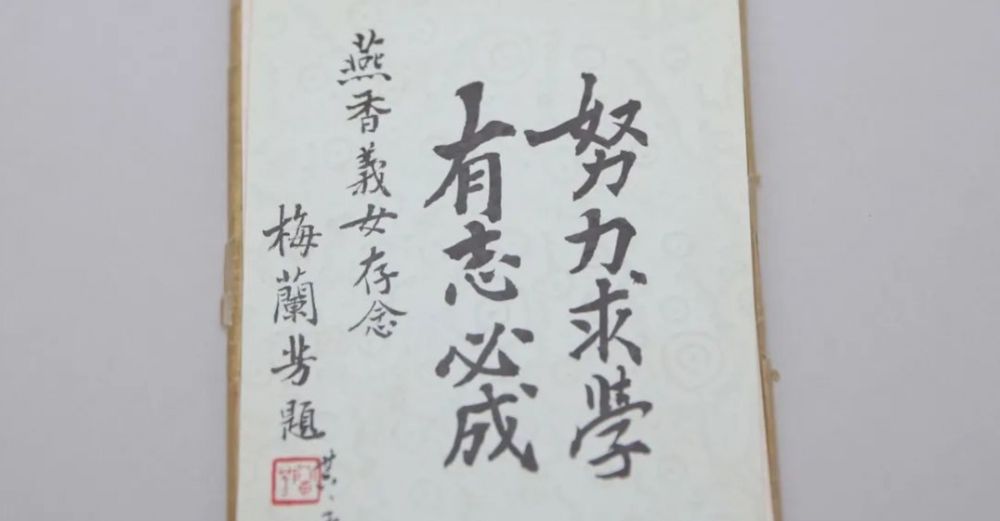 努力求學
有志必成
燕香義女存念
梅蘭芳題